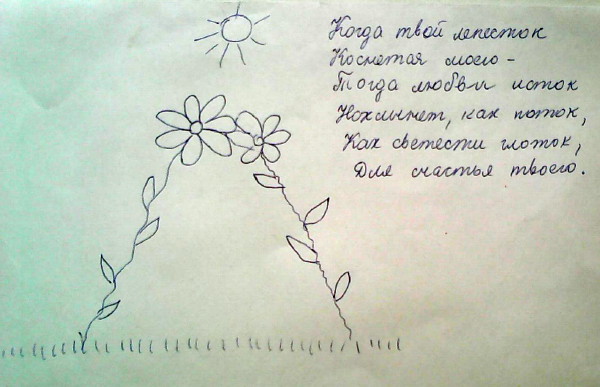 Когда твой лепесток
Коснется моего -
Тогда любви исток
Нохлынет, как поток,
Как светести глоток,
Для счастья твоего.